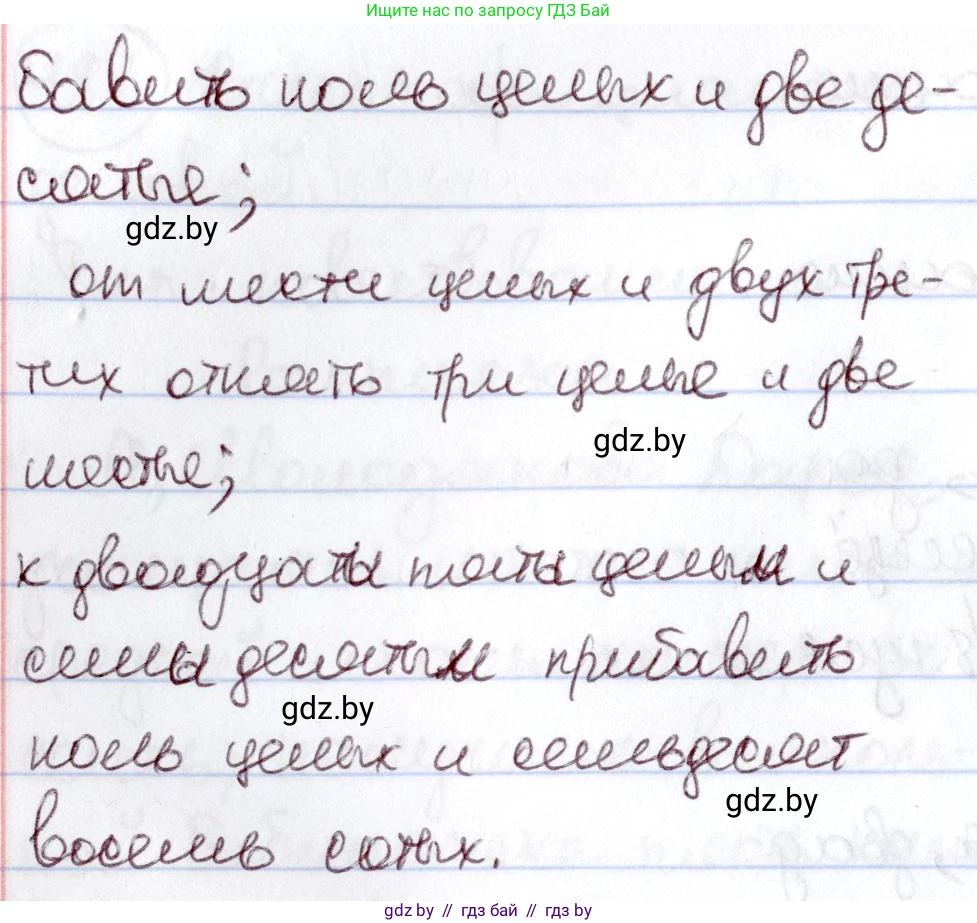 Ищите нас по запросу ГДЗ Бай
бавить ноль целых и две де-
сятые;
gdz.by
от шести целых и двух тре-
тих отнять три целые и две
gdz.by
шестые;
к двадцати пяти целым и
семи десятым прибавить
gdz.by
ноль целых и семьдесят
gdz.by
восемь сотых.
gdz.by // гдз бай // гдз by